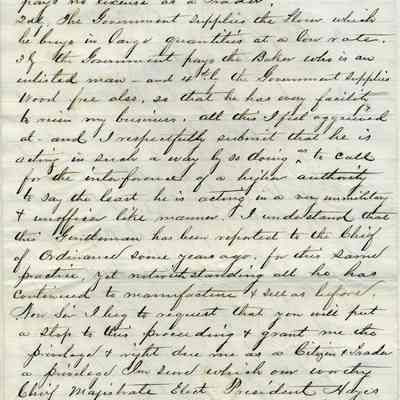 pays no license as a trader.
2nd, The Government supplies the flour which
he buys in large quantities at a low rate.
3d, the Government pays the Baker who is an
enlisted man - and 4th the Government supplies
Wood free also, so that he has every facility
to ruin my business. all this I feel aggrieved
at - and I respectfully submit that he is
acting in such a way by so doing as to call
for the interference of a higher authority
to say the least he is acting in a very unmilitary
& unofficer like manner. I understand that
this Gentleman has been reported to the Chief
of Ordinance some years ago, for this same
practice, yet notwithstanding all he has
continued to manufacture & sell as before.
Now Sir I beg to request that you will put
a stop to this proceeding & grant me the
privilege & right due me as a Citizen & Trader
a privilege I'm sure which our worthy
Chief Magistrate Elect President Hayes